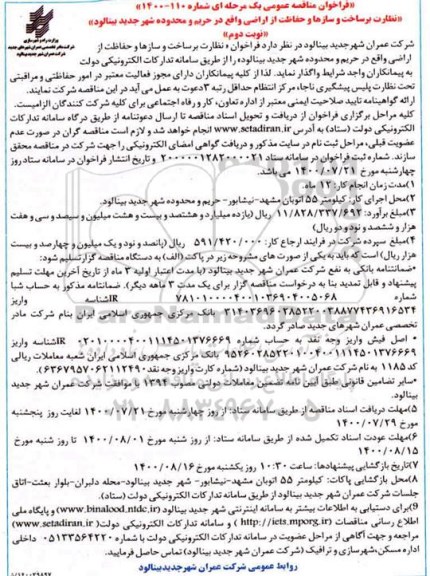 «فراخوان مناقصه عمومی یک مرحله ای شماره ۱۱۰-۱۴۰۰»
«نظارت برساخت و سازها و حفاظت از اراضی واقع در حریم و محدوده شهر جدید بینالود»
«نوبت دوم»
شرکت عمران شهر جدید بینالود در نظر دارد فراخوان « نظارت برساخت و سازها و حفاظت از
اراضی واقع در حریم و محدوده شهر جدید بینالود» را از طریق سامانه تدارکات الکترونیکی دولت
به پیمانکاران واجد شرایط واگذار نماید. لذا از کلیه پیمانکاران دارای مجوز فعالیت معتبر در امور حفاظتی و مراقبتی
تحت نظارت پلیس پیشگیری ناجا، مرکز انتظام حداقل رتبه ۳ دعوت به عمل می آید در این مناقصه شرکت نمایند.
ارائه گواهینامه تایید صلاحیت ایمنی معتبر از اداره تعاون، کار و رفاه اجتماعی برای کلیه شرکت کنندگان الزامیست.
کلیه مراحل برگزاری فراخوان از دریافت و تحویل اسناد مناقصه تا ارسال دعوتنامه از طریق درگاه سامانه تدارکات
الکترونیکی دولت (ستاد) به آدرس www.setadiran.ir انجام خواهد شد و لازم است مناقصه گران در صورت عدم
عضویت قبلی، مراحل ثبت نام در سایت مذکور و دریافت گواهی امضای الکترونیکی را جهت شرکت در مناقصه محقق
سازند. شماره ثبت فراخوان در سامانه ستاد ۲۰۰۰۰۰۱۲۸۲۰۰۰۰۲۱ و تاریخ انتشار فراخوان در سامانه ستاد روز
چهارشنبه مورخ ۱۴۰۰/۰۷/۲۱ می باشد.
۱)مدت زمان انجام کار: ۱۲ ماه
۲)محل اجرای کار: کیلومتر ۵۵ اتوبان مشهد-نیشابور- حریم و محدوده شهر جدید بینالود.
۳)مبلغ برآورد: ۱۱/۸۲۸/۲۳۷/۶۹۲ ریال (یازده میلیارد و هشتصد و بیست و هشت میلیون و سیصد و سی و هفت
هزار و ششصد و نود و دو ریال)
۴)مبلغ سپرده شرکت در فرایند ارجاع کار: ۵۹۱/۴۲۰/۰۰۰ ریال (پانصد و نود و یک میلیون و چهارصد و بیست
هزار ریال) است که باید به یکی از صورت های مشروحه زیر در پاکت (الف) به دستگاه مناقصه گزار تسلیم شود:
•ضمانتنامه بانکی به نفع شرکت عمران شهر جدید بینالود (با مدت اعتبار اولیه ۳ ماه از تاریخ آخرین مهلت تسلیم
پیشنهاد و قابل تمدید بنا به درخواست مناقصه گزار برای یک مدت ۳ ماهه دیگر). ضمانتنامه مذکور به حساب شبا
تخصصی عمران شهرهای جدید صادر گردد.
• اصل فیش واریز وجه نقد به حساب شماره
•سایر تضامین قانونی طبق آیین نامه تضمین معاملات دولتی مصوب ۱۳۹۴ با موافقت شرکت عمران شهر جدید
بینالود.
۵)مهلت دریافت اسناد مناقصه از طریق سامانه ستاد: از روز چهارشنبه مورخ ۱۴۰۰/۰۷/۲۱ لغایت روز پنجشنبه
مورخ ۱۴۰۰/۰۷/۲۹
۶)مهلت عودت اسناد تکمیل شده از طریق سامانه ستاد: از روز شنبه مورخ ۱۴۰۰/۰۸/۰۱ تا روز شنبه مورخ
۱۴۰۰/۰۸/۱۵
۷)تاریخ بازگشایی پیشنهادها: ساعت ۱۰:۳۰ روز یکشنبه مورخ ۱۴۰۰/۰۸/۱۶
۸)محل بازگشایی پاکات: کیلومتر ۵۵ اتوبان مشهد-نیشابور- شهر جدید بینالود-محله دلبران-بلوار بعثت-اتاق
جلسات شرکت عمران شهر جدید بینالود از طریق سامانه تدارکات الکترونیکی دولت (ستاد).
۹)برای دستیابی به اطلاعات بیشتر به سامانه اینترنتی شهر جدید بینالود (www.binalood.ntdc.ir) و پایگاه ملی
اطلاع رسانی مناقصات (http://iets.mporg.ir) و سامانه تدارکات الکترونیکی دولت( www.setadiran.ir)
مراجعه و جهت آگاهی از مراحل عضویت در سامانه تدارکات الکترونیکی دولت با شماره ۰۵۱۳۳۵۶۴۲۲۰ داخلی
اداره مسکن،شهرسازی و ترافیک (شرکت عمران شهر جدید بینالود) تماس حاصل فرمایید.
روابط عمومی شرکت عمران شهرجدیدبینالود